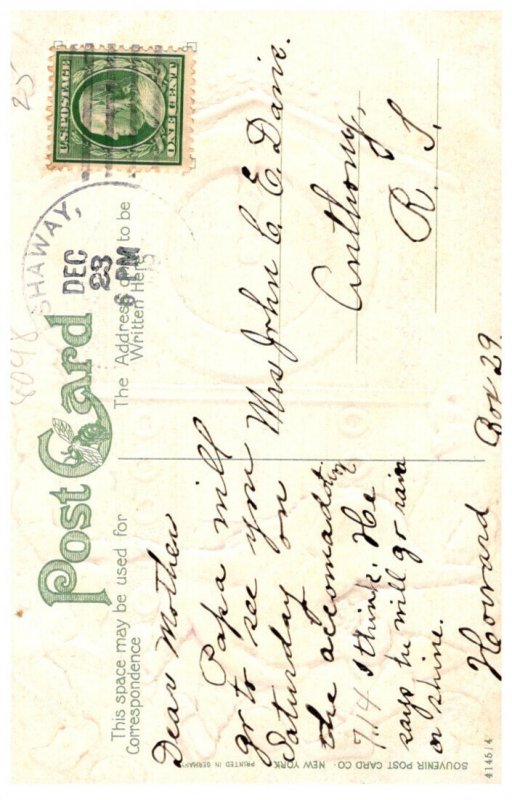 Post Card
This space may be used for
Correspondence
The Address only to be
Written Here
U.S. POSTAGE
ONE CENT
SHAWAY,
DEC
23
6 PM
25
8098
Dear Mother
Papa will
go to see you
Saturday on
the accomadating
7.14 I think. He
says he will go rain
or shine.
Howard
Mrs John C. E. Davie.
Anthony,
R. I.
Box 29.
SOUVENIR POST CARD CO. NEW YORK
PRINTED IN GERMANY
4145/4